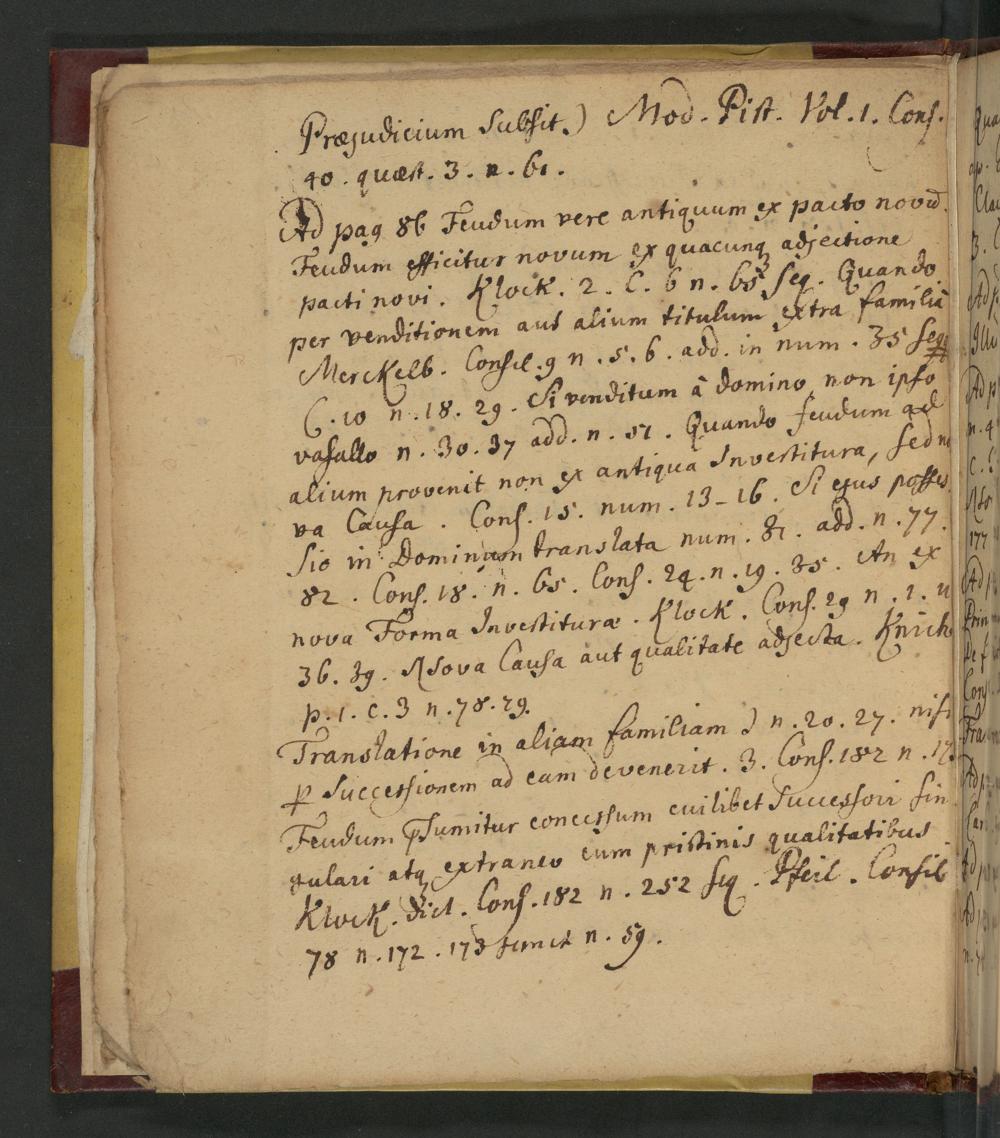 Præjudicium Subsit.) Mod. Pist. Vol. 1. Cons.
40. quæst. 3. n. 61.
Ad pag 86 Feudum vere antiquum ex pacto novo.
Feudum efficitur novum ex quacunq adjectione
pacti novi. Klock. 2. C. 6 n. 65 seq. Quando
per venditionem aut alium titulum extra familiã
Merckelb. Consil. 9 n. 5. 6. add. in num. 35 seqq
C. 10 n. 18. 29. Si venditum â domino, non ipso
vasallo n. 30. 37 add. n. 51. Quando feudum ad
alium provenit non ex antiqua Investitura, sed no
va Causa. Cons. 15. num. 13-16. Si ejus posses
sio in Dominum translata num. 81. add. n. 77.
82. Cons. 18. n. 65. Cons. 24. n. 19. 35. An ex
nova Forma Investituræ. Klock. Cons. 29 n. 1. 11
36. 39. Nova Causa aut qualitate adjecta. Knich
p. 1. C. 3 n. 78. 79.
Translatione in aliam familiam) n. 20. 27. nisi
p Successionem ad eam devenerit. 3. Cons. 182 n. 17
Feudum psumitur concessum cuilibet Successori sin
gulari atq extraneo cum pristinis qualitatibus
Klock. dict. Cons. 182 n. 252 seq. Pfeil. Consil
78 n. 172. 173 junct n. 59.